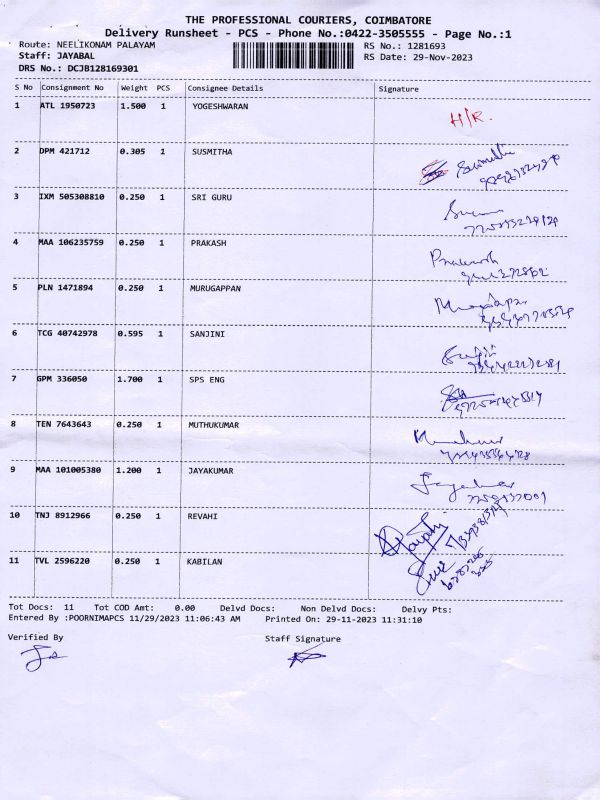 THE PROFESSIONAL COURIERS, COIMBATORE
Delivery Runsheet - PCS - Phone No.:0422-3505555 - Page No.:1
Route: NEELIKONAM PALAYAM
RS No.: 1281693
Staff: JAYABAL
RS Date: 29-Nov-2023
DRS No.: DCJB128169301
S No Consignment No Weight PCS Consignee Details Signature
1 ATL 1950723 1.500 1 YOGESHWARAN H/R.
2 DPM 421712 0.305 1 SUSMITHA Susmitha
3 IXM 505308810 0.250 1 SRI GURU
4 MAA 106235759 0.250 1 PRAKASH Prakash
5 PLN 1471894 0.250 1 MURUGAPPAN
6 TCG 40742978 0.595 1 SANJINI
7 GPM 336050 1.700 1 SPS ENG
8 TEN 7643643 0.250 1 MUTHUKUMAR
9 MAA 101005380 1.200 1 JAYAKUMAR
10 TNJ 8912966 0.250 1 REVAHI
11 TVL 2596220 0.250 1 KABILAN
Tot Docs: 11 Tot COD Amt: 0.00 Delvd Docs: Non Delvd Docs: Delvy Pts:
Entered By :POORNIMAPCS 11/29/2023 11:06:43 AM Printed On: 29-11-2023 11:31:10
Verified By Staff Signature